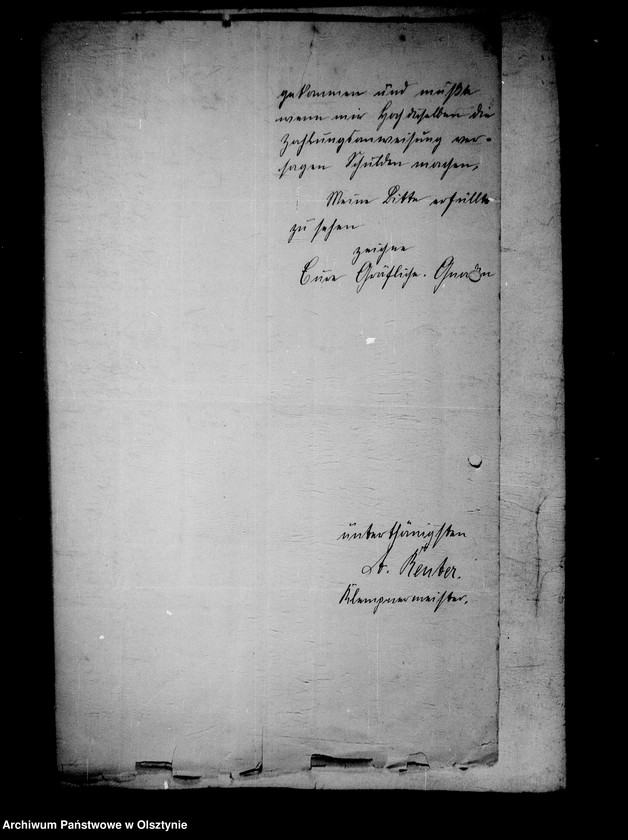 gekommen und müßte
wenn mir Hochdieselben die
Zahlungsanweisung ver-
sagen Schulden machen,
Meine Bitte erfüllt
zu sehen
zeichne
Eure Gräfliche. Gnaden
unterthänigsten
A. Reuber.
Klempnermeister.
Archiwum Państwowe w Olsztynie